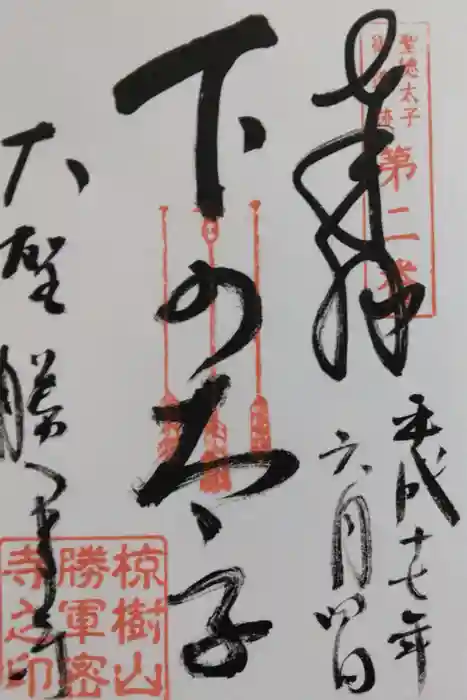 奉拝
聖徳太子
御遺跡
第二番
平成十七年
六月四日
下の太子
大聖勝軍寺
椋樹山
勝軍密
寺之印